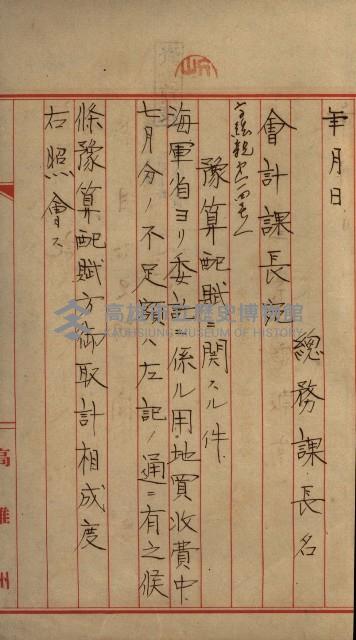 年月日
總務課長名
會計課長宛
豫算配賦ニ関スル件
海軍省ヨリ委託ニ係ル用地買收費中
七月分ノ不足額ハ左記ノ通ニ有之候
條豫算配賦方御取計相成度
右照會ス
高雄州
高雄市立歷史博物館
KAOHSIUNG MUSEUM OF HISTORY